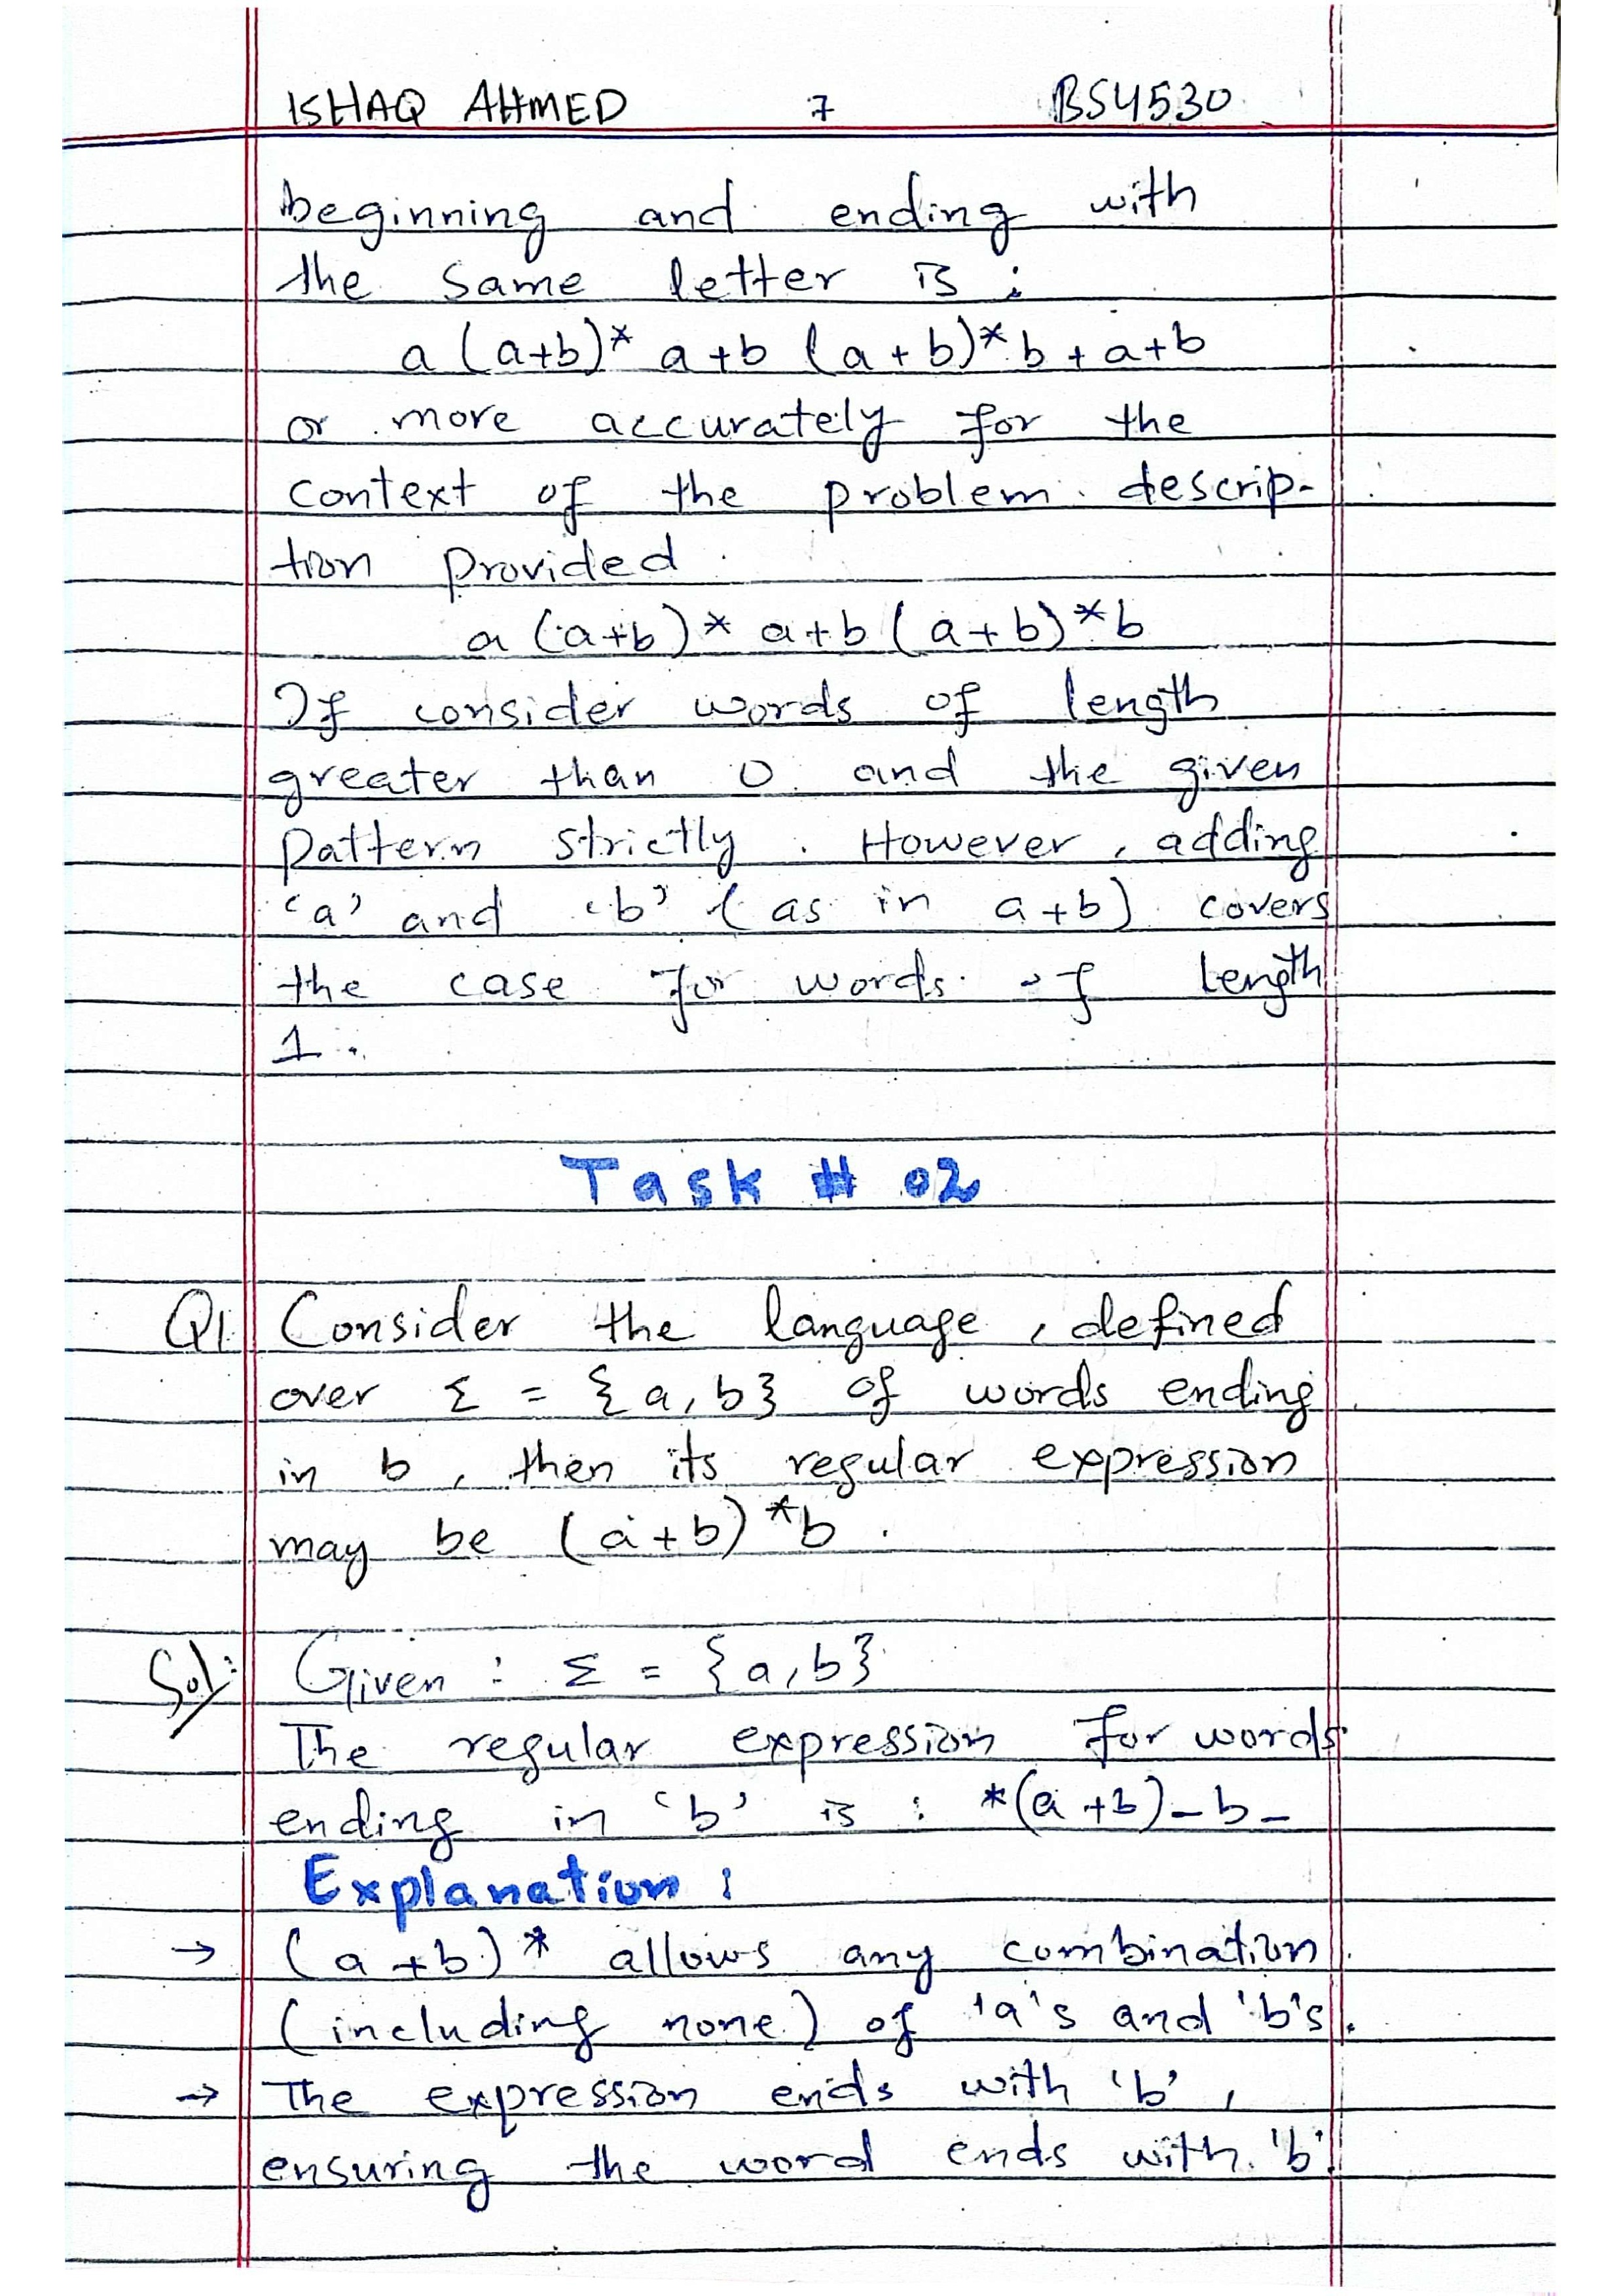 ISHAQ AHMED 7 BS4530
beginning and ending with
the same letter is :
a (a+b)* a+b (a+b)* b + a+b
or more accurately for the
context of the problem descrip-
tion provided
a (a+b)* a+b (a+b)*b
If consider words of length
greater than 0 and the given
pattern strictly. However, adding
'a' and 'b' (as in a+b) covers
the case for words of length
1.
Task # 02
Q1 Consider the language, defined
over Σ = {a,b} of words ending
in b, then its regular expression
may be (a+b)*b.
Sol: Given : Σ = {a,b}
The regular expression for words
ending in 'b' is : *(a+b)-b-
Explanation :
→ (a+b)* allows any combination
(including none) of 'a's and 'b's.
→ The expression ends with 'b',
ensuring the word ends with 'b'.